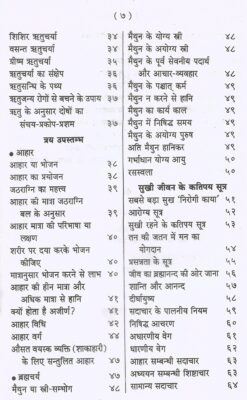 ( ७ )
शिशिर ऋतुचर्या ३४
वसन्त ऋतुचर्या ३४
ग्रीष्म ऋतुचर्या ३५
ऋतुचर्या का संक्षेप ३६
ऋतुसन्धि के पथ्य ३६
ऋतुजन्य रोगों से बचने के उपाय ३७
ऋतु के अनुसार दोषों का
संचय-प्रकोप-प्रशम ३७
त्रय उपस्तम्भ
● आहार
आहार या भोजन ३८
आहार का प्रयोजन ३८
जठराग्नि का महत्त्व ३९
आहार की मात्रा जठराग्नि
बल के अनुसार ३९
आहार मात्रा की परिभाषा या
लक्षण ४०
शरीर पर दया करके भोजन
कीजिए ४०
मात्रानुसार भोजन करने से लाभ ४०
आहार की हीन मात्रा और
अधिक मात्रा से हानि ४१
क्यों होता है अजीर्ण? ४१
आहार विधि ४२
आहार वर्ग ४४
औसत वयस्क व्यक्ति (शाकाहारी)
के लिए सन्तुलित आहार ४७
● ब्रह्मचर्य ४७
मैथुन या स्त्री-सम्भोग ४८
मैथुन के योग्य स्त्री ४८
मैथुन के अयोग्य स्त्री ४८
मैथुन के पूर्व सेवनीय पदार्थ
और आचार-व्यवहार ४८
मैथुन के पश्चात् कर्म ४९
मैथुन न करने से हानि ४९
मैथुन का कार्य काल ४९
मैथुन में निषिद्ध समय ४९
मैथुन के अयोग्य पुरुष ४९
अति मैथुन हानिकर ४९
गर्भाधान योग्य आयु ५०
रजस्वला ५०
सुखी जीवन के कतिपय सूत्र
सबसे बड़ा सुख 'निरोगी काया' ५१
आरोग्य सूत्र ५२
सुखी रहने के कतिपय सूत्र ५३
तन की जतन में मन का
योगदान ५४
प्रसन्नता के सूत्र ५५
जीव का ब्रह्मानन्द की ओर जाना ५६
शान्ति और आनन्द ५७
दीर्घायुष्य ५८
सदाचार के पालनीय नियम ५९
निषिद्ध आचरण ६०
अधारणीय वेग ६१
धारणीय वेग ६२
आहार सम्बन्धी सदाचार ६२
अध्ययन सम्बन्धी शिष्टाचार ६३
सामान्य सदाचार ६४